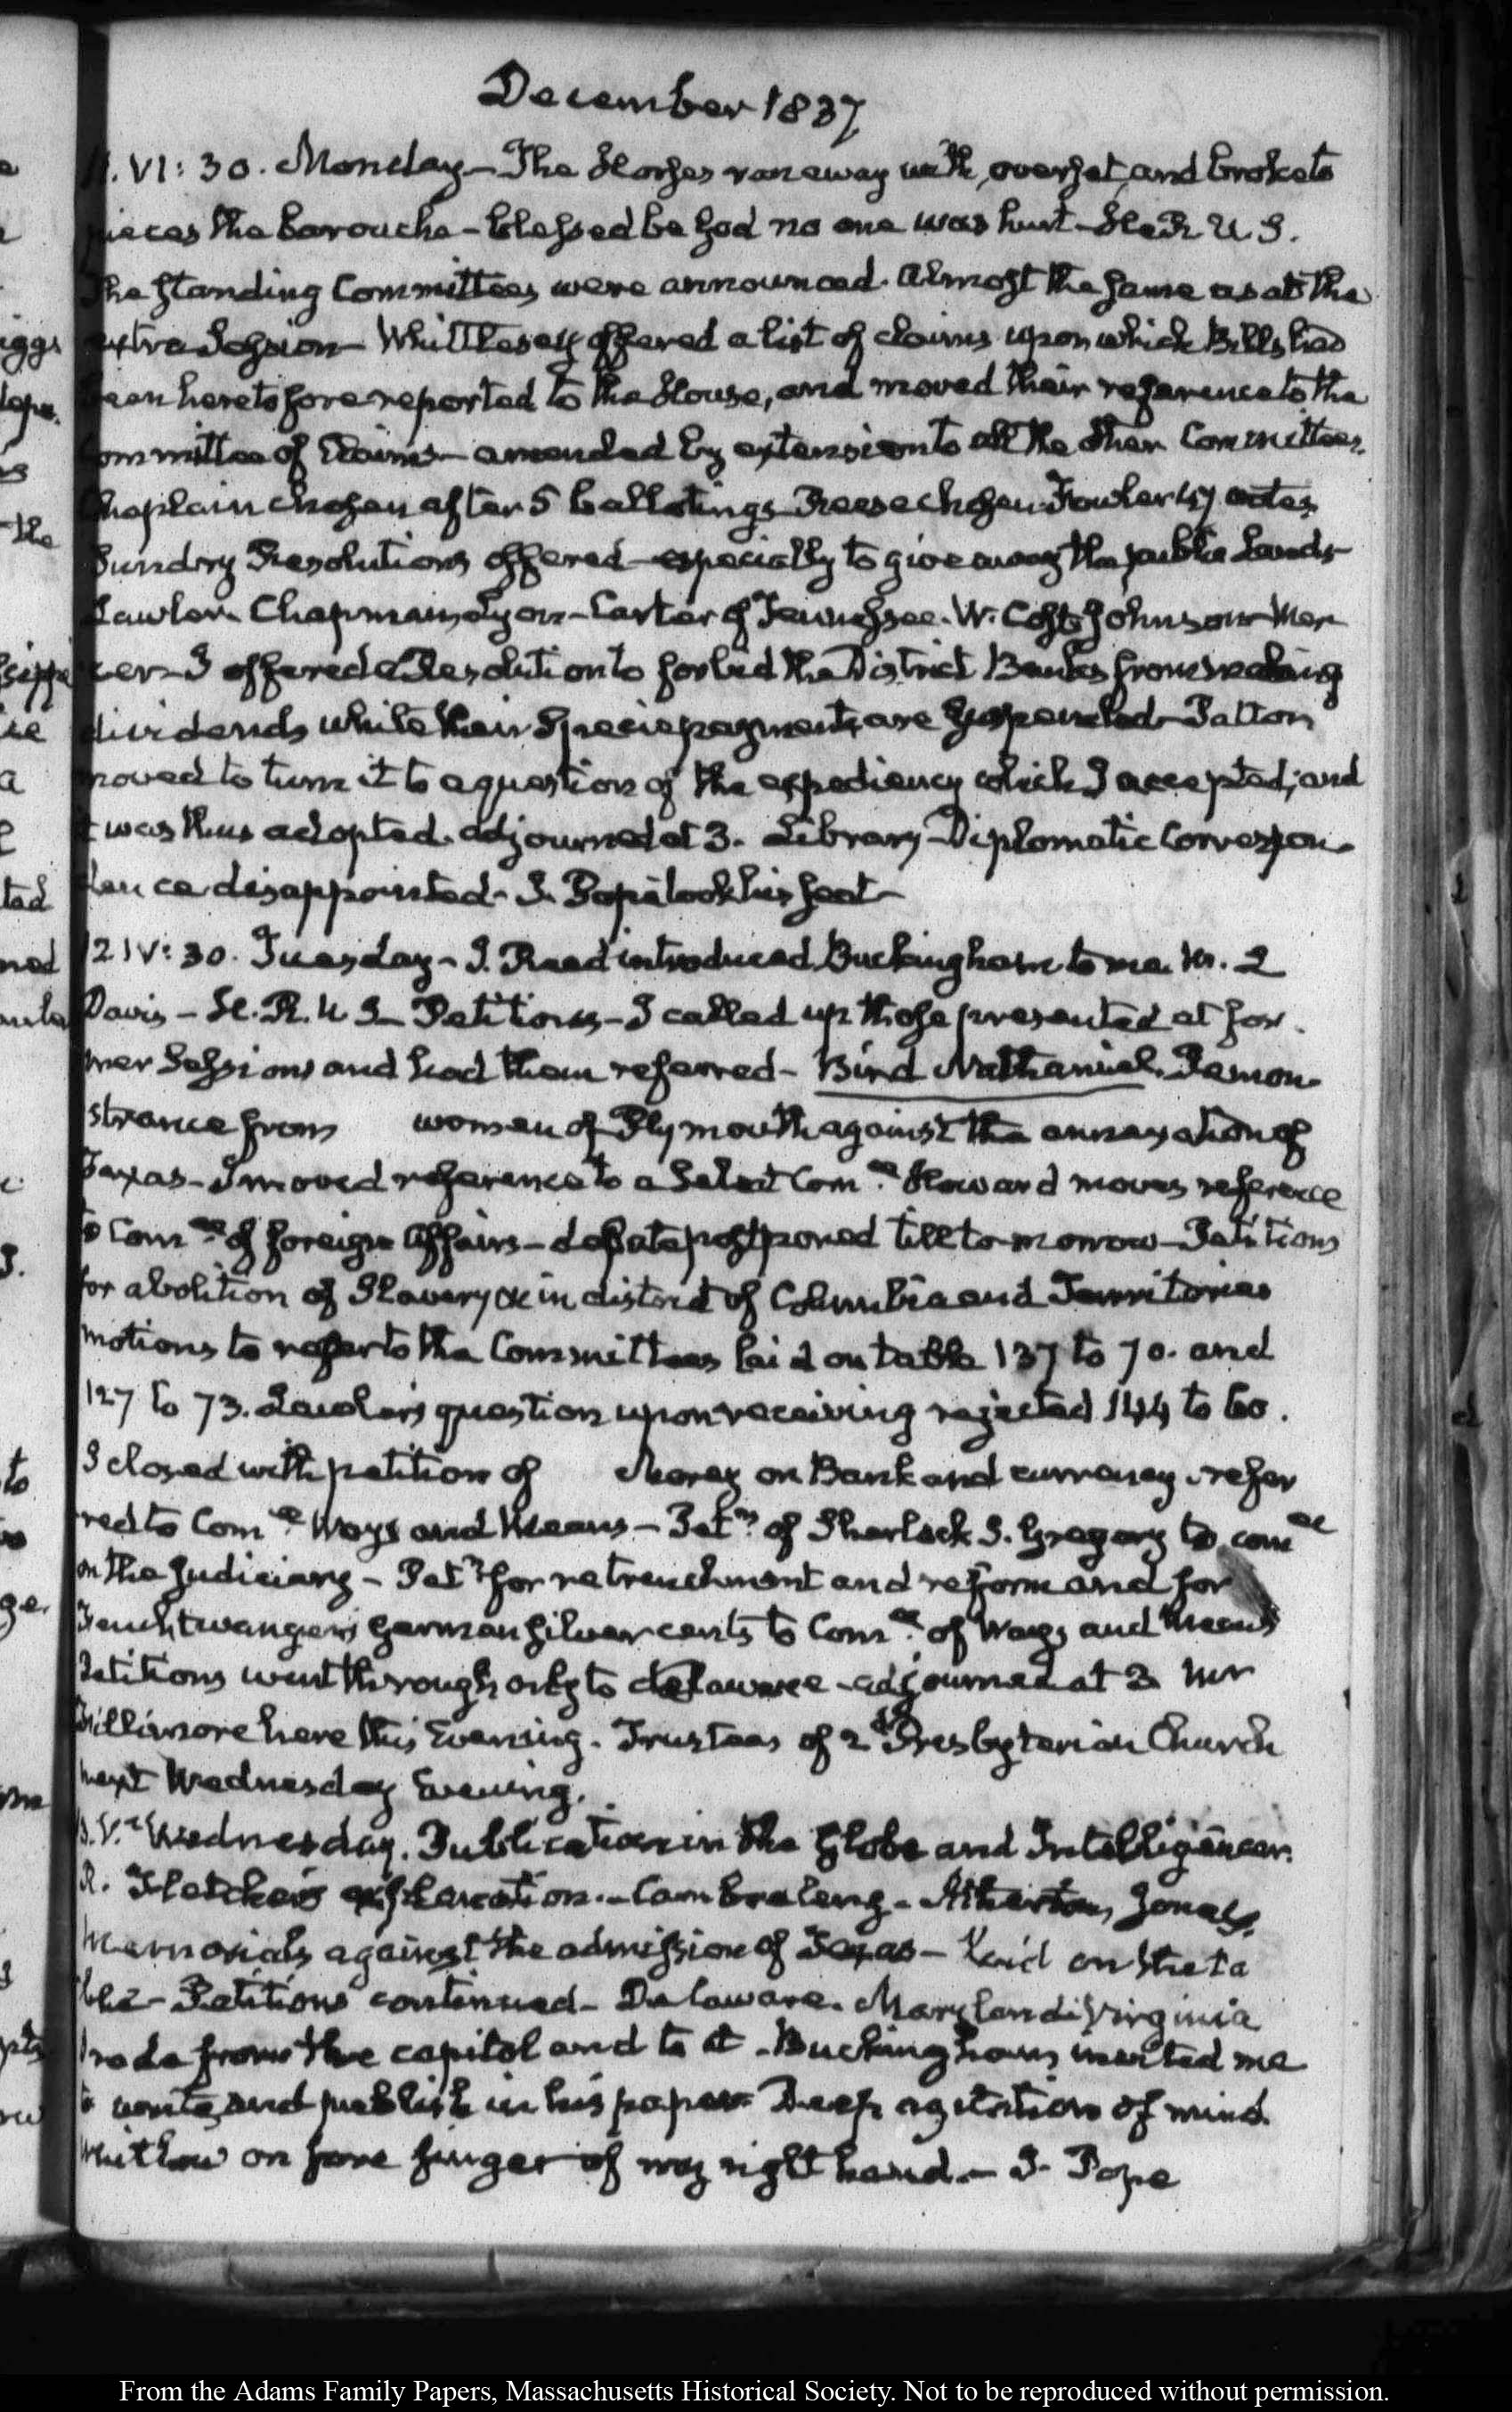 December 1837
VI: 30. Monday – The Horses ran away with, overset, and broke to
pieces the barouche – blessed be God no one was hurt – H. R. U. S.
The Standing Committees were announced. Almost the same as at the
extra Session – Whittlesey offered a list of claims upon which Bills had
been heretofore reported to the House, and moved their reference to the
Committee of Claims – amended by extension to all the other Committees.
Chaplain chosen after 5 ballotings Reese chosen Fowler 47 votes
Sundry Resolutions offered – especially to give away the public Lands –
Lawler. Chapman, Lyon – Carter of Tennessee. W. Cost Johnson – Mer
cer – I offered a Resolution to forbid the District Banks from making
dividends while their Specie payments are suspended – Patton
moved to turn it to a question of the expediency which I accepted; and
it was thus adopted. adjourned at 3. Library – Diplomatic Correspon-
dence disappointed – J. Pope took his seat –
12 IV: 30. Tuesday – J. Reed introduced Buckingham to me. Mr. J
Davis – H. R. U S – Petitions – I called up those presented at for
mer Sessions and had them referred – Bird Nathaniel. Remon-
strance from women of Plymouth against the annexation of
Texas – I moved reference to a Select Com.ee Howard moves reference
to Com.ee of foreign Affairs – debate postponed till to-morrow – Petitions
for abolition of Slavery &c in district of Columbia and Territories
motions to refer to the Committees laid on table 137 to 70. and
127 to 73. Lawler's question upon receiving rejected 144 to 60.
I closed with petition of Morey on Bank and currency refer
red to Com.ee Ways and Means – Pet.n of Sherlock S. Gregory to com.ee
on the Judiciary – Pet.n for retrenchment and reform and for
Feuchtwanger's German silver cents to Com.ee of Ways and Means
Petitions went through only to Delaware – adjourned at 3 Mr
Fillmore here this Evening. Trustees of 2d Presbyterian Church
next Wednesday Evening.
V. Wednesday. Publication in the Globe and Intelligencer.
R. Fletcher's explanation. – Cambreleng – Atherton, Jones.
Memorials against the admission of Texas – laid on the ta
ble – Petitions continued – Delaware. Maryland. Virginia
rode from the capitol and to it – Buckingham invited me
to write and publish in his paper Deep agitation of mind.
Whitlow on fore finger of my right hand. – J. Pope
From the Adams Family Papers, Massachusetts Historical Society. Not to be reproduced without permission.